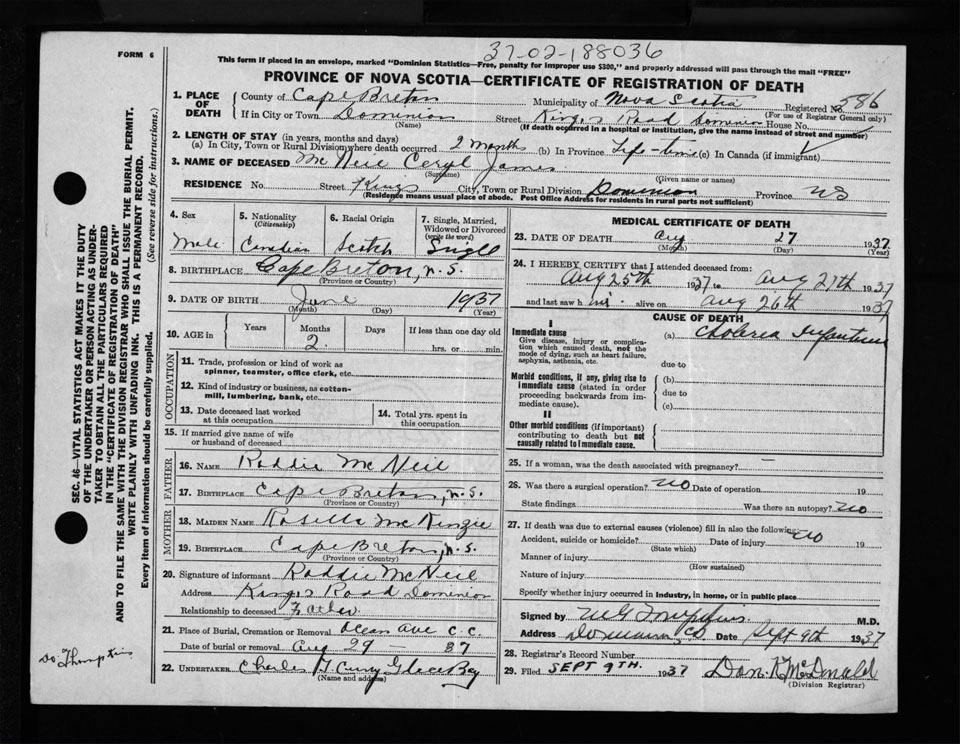 FORM 6
37-02-188036
This form if placed in an envelope, marked "Dominion Statistics—Free, penalty for improper use $300," and properly addressed will pass through the mail "FREE"
PROVINCE OF NOVA SCOTIA—CERTIFICATE OF REGISTRATION OF DEATH
1. PLACE OF DEATH
County of Cape Breton Municipality of Nova Scotia Registered No. 586
(For use of Registrar General only)
If in City or Town Dominion Street Kings Road Dominion House No.
(Name) (If death occurred in a hospital or institution, give the name instead of street and number)
2. LENGTH OF STAY (in years, months and days)
(a) In City, Town or Rural Division where death occurred 2 months (b) In Province Life-time (c) In Canada (if immigrant)
3. NAME OF DECEASED McNeil Ceryl James
(Surname) (Given name or names)
RESIDENCE No. Street Kings City, Town or Rural Division Dominion Province NS
(Residence means usual place of abode. Post Office Address for residents in rural parts not sufficient)
4. Sex
Male
5. Nationality (Citizenship)
Canadian
6. Racial Origin
Scotch
7. Single, Married, Widowed or Divorced (write the word)
Single
8. BIRTHPLACE Cape Breton, N.S.
(Province or Country)
9. DATE OF BIRTH June 1937
(Month) (Day) (Year)
10. AGE in Years Months Days If less than one day old
2. hrs. or min.
OCCUPATION
11. Trade, profession or kind of work as spinner, teamster, office clerk, etc.
12. Kind of industry or business, as cotton-mill, lumbering, bank, etc.
13. Date deceased last worked at this occupation
14. Total yrs. spent in this occupation
15. If married give name of wife or husband of deceased
FATHER
16. NAME Roddie McNeil
17. BIRTHPLACE Cape Breton, N.S.
(Province or Country)
MOTHER
18. MAIDEN NAME Rosella McKenzie
19. BIRTHPLACE Cape Breton, N.S.
(Province or Country)
20. Signature of informant Roddie McNeil
Address Kings Road Dominion
Relationship to deceased Father
21. Place of Burial, Cremation or Removal Ocean Ave C.C.
Date of burial or removal Aug 29 - 37
22. UNDERTAKER Charles J. Curry Glace Bay
(Name and address)
MEDICAL CERTIFICATE OF DEATH
23. DATE OF DEATH Aug 27 1937
(Month) (Day) (Year)
24. I HEREBY CERTIFY that I attended deceased from:
Aug 25th 1937 to Aug 27th 1937
and last saw him alive on Aug 26th 1937
CAUSE OF DEATH
I
Immediate cause
Give disease, injury or complication which caused death, not the mode of dying, such as heart failure, asphyxia, asthenia, etc.
(a) Cholerea Infantum
due to
Morbid conditions, if any, giving rise to immediate cause (stated in order proceeding backwards from immediate cause).
(b)
due to
(c)
II
Other morbid conditions (if important) contributing to death but not causally related to immediate cause.
25. If a woman, was the death associated with pregnancy? —
26. Was there a surgical operation? NO Date of operation 19
State findings Was there an autopsy? NO
27. If death was due to external causes (violence) fill in also the following: NO
Accident, suicide or homicide? Date of injury 19
(State which)
Manner of injury
(How sustained)
Nature of injury
Specify whether injury occurred in Industry, in home, or in public place
Signed by M.D.
Address Dominion CB Date Sept 9th 1937
28. Registrar's Record Number
29. Filed SEPT 9TH. 1937 Dan. K McDonald
(Division Registrar)
SEC. 46—VITAL STATISTICS ACT MAKES IT THE DUTY
OF THE UNDERTAKER OR PERSON ACTING AS UNDER-
TAKER TO OBTAIN ALL THE PARTICULARS REQUIRED
IN THE "CERTIFICATE OF REGISTRATION OF DEATH"
AND TO FILE THE SAME WITH THE DIVISION REGISTRAR WHO SHALL ISSUE THE BURIAL PERMIT.
WRITE PLAINLY WITH UNFADING INK. THIS IS A PERMANENT RECORD.
Every item of information should be carefully supplied. (See reverse side for instructions.)